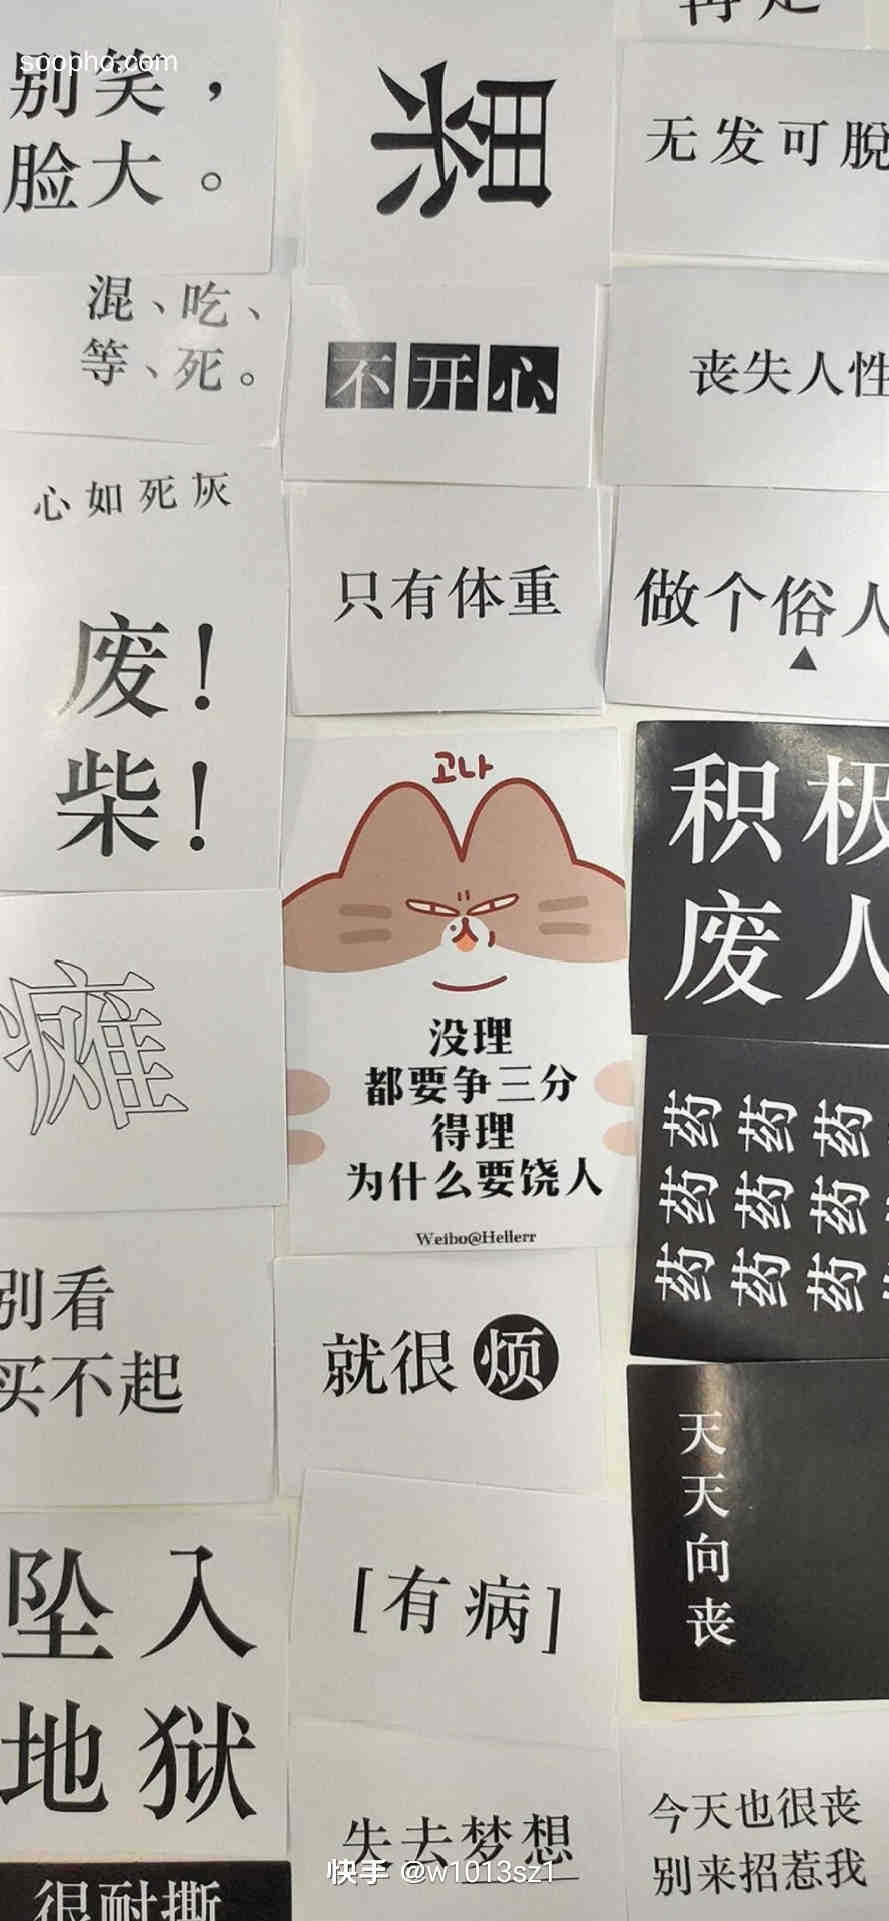 soopho.com
别笑，
脸大。
累
再是
无发可脱
混、吃、
等、死。
不开心
丧失人性
心如死灰
只有体重
做个俗人
▲
废！
柴！
고나
积极
废人
瘫
没理
都要争三分
得理
为什么要饶人
Weibo@Hellerr
药药药
药药药
药药药
别看
买不起
就很烦
天
天
向
丧
坠入
地狱
[有病]
失去梦想
今天也很丧
别来招惹我
快手 @w1013sz1
很耐撕